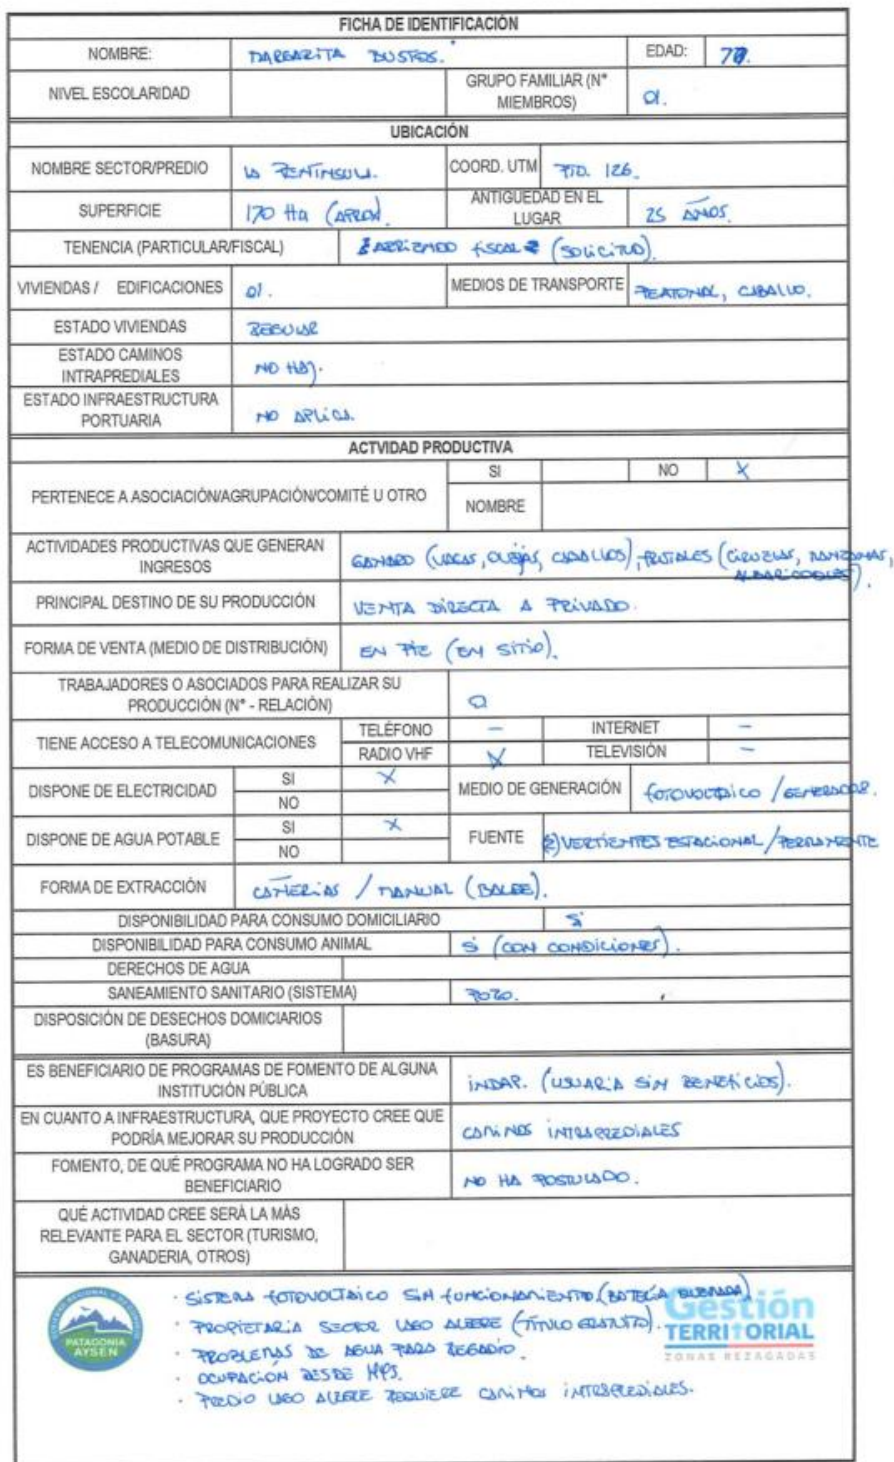 FICHA DE IDENTIFICACIÓN
NOMBRE: MARGARITA BUSTOS. EDAD:
NIVEL ESCOLARIDAD GRUPO FAMILIAR (N° MIEMBROS) 01.
UBICACIÓN
NOMBRE SECTOR/PREDIO LA PENÍNSULA. COORD. UTM PTO. 126.
SUPERFICIE 170 Ha (APROX). ANTIGUEDAD EN EL LUGAR 25 AÑOS.
TENENCIA (PARTICULAR/FISCAL) ARRIENDO FISCAL (SOLICITUD).
VIVIENDAS / EDIFICACIONES 01. MEDIOS DE TRANSPORTE PEATONAL, CABALLO.
ESTADO VIVIENDAS REGULAR
ESTADO CAMINOS INTRAPREDIALES NO HAY.
ESTADO INFRAESTRUCTURA PORTUARIA NO APLICA.
ACTVIDAD PRODUCTIVA
PERTENECE A ASOCIACIÓN/AGRUPACIÓN/COMITÉ U OTRO SI NO X
NOMBRE
ACTIVIDADES PRODUCTIVAS QUE GENERAN INGRESOS GANADO (VACAS, OVEJAS, CABALLOS), FRUTALES (CIRUELAS, MANZANAS, ALBARICOQUES).
PRINCIPAL DESTINO DE SU PRODUCCIÓN VENTA DIRECTA A PRIVADO.
FORMA DE VENTA (MEDIO DE DISTRIBUCIÓN) EN PIE (EN SITIO).
TRABAJADORES O ASOCIADOS PARA REALIZAR SU PRODUCCIÓN (N° - RELACIÓN) 0
TIENE ACCESO A TELECOMUNICACIONES TELÉFONO - INTERNET -
RADIO VHF X TELEVISIÓN -
DISPONE DE ELECTRICIDAD SI X MEDIO DE GENERACIÓN FOTOVOLTAICO / GENERADOR.
NO
DISPONE DE AGUA POTABLE SI X FUENTE (2) VERTIENTES ESTACIONAL / PERMANENTE
NO
FORMA DE EXTRACCIÓN CAÑERIAS / MANUAL (BALDE).
DISPONIBILIDAD PARA CONSUMO DOMICILIARIO SI
DISPONIBILIDAD PARA CONSUMO ANIMAL SI (CON CONDICIONES).
DERECHOS DE AGUA
SANEAMIENTO SANITARIO (SISTEMA) POZO.
DISPOSICIÓN DE DESECHOS DOMICIARIOS (BASURA)
ES BENEFICIARIO DE PROGRAMAS DE FOMENTO DE ALGUNA INSTITUCIÓN PÚBLICA INDAP. (USUARIA SIN BENEFICIOS).
EN CUANTO A INFRAESTRUCTURA, QUE PROYECTO CREE QUE PODRÍA MEJORAR SU PRODUCCIÓN CAMINOS INTRAPREDIALES
FOMENTO, DE QUÉ PROGRAMA NO HA LOGRADO SER BENEFICIARIO NO HA POSTULADO.
QUÉ ACTIVIDAD CREE SERÁ LA MÁS RELEVANTE PARA EL SECTOR (TURISMO, GANADERIA, OTROS)
PATAGONIA AYSÉN
· SISTEMA FOTOVOLTAICO SIN FUNCIONAMIENTO (BATERÍA QUEMADA)
· PROPIETARIA SECTOR LAGO ALEGRE (TÍTULO GRATUITO).
· PROBLEMAS DE AGUA PARA REGADÍO.
· OCUPACIÓN DESDE
· PREDIO LAGO ALEGRE REQUIERE CAMINOS INTRAPREDIALES.
Gestión
TERRITORIAL
ZONAS REZAGADAS